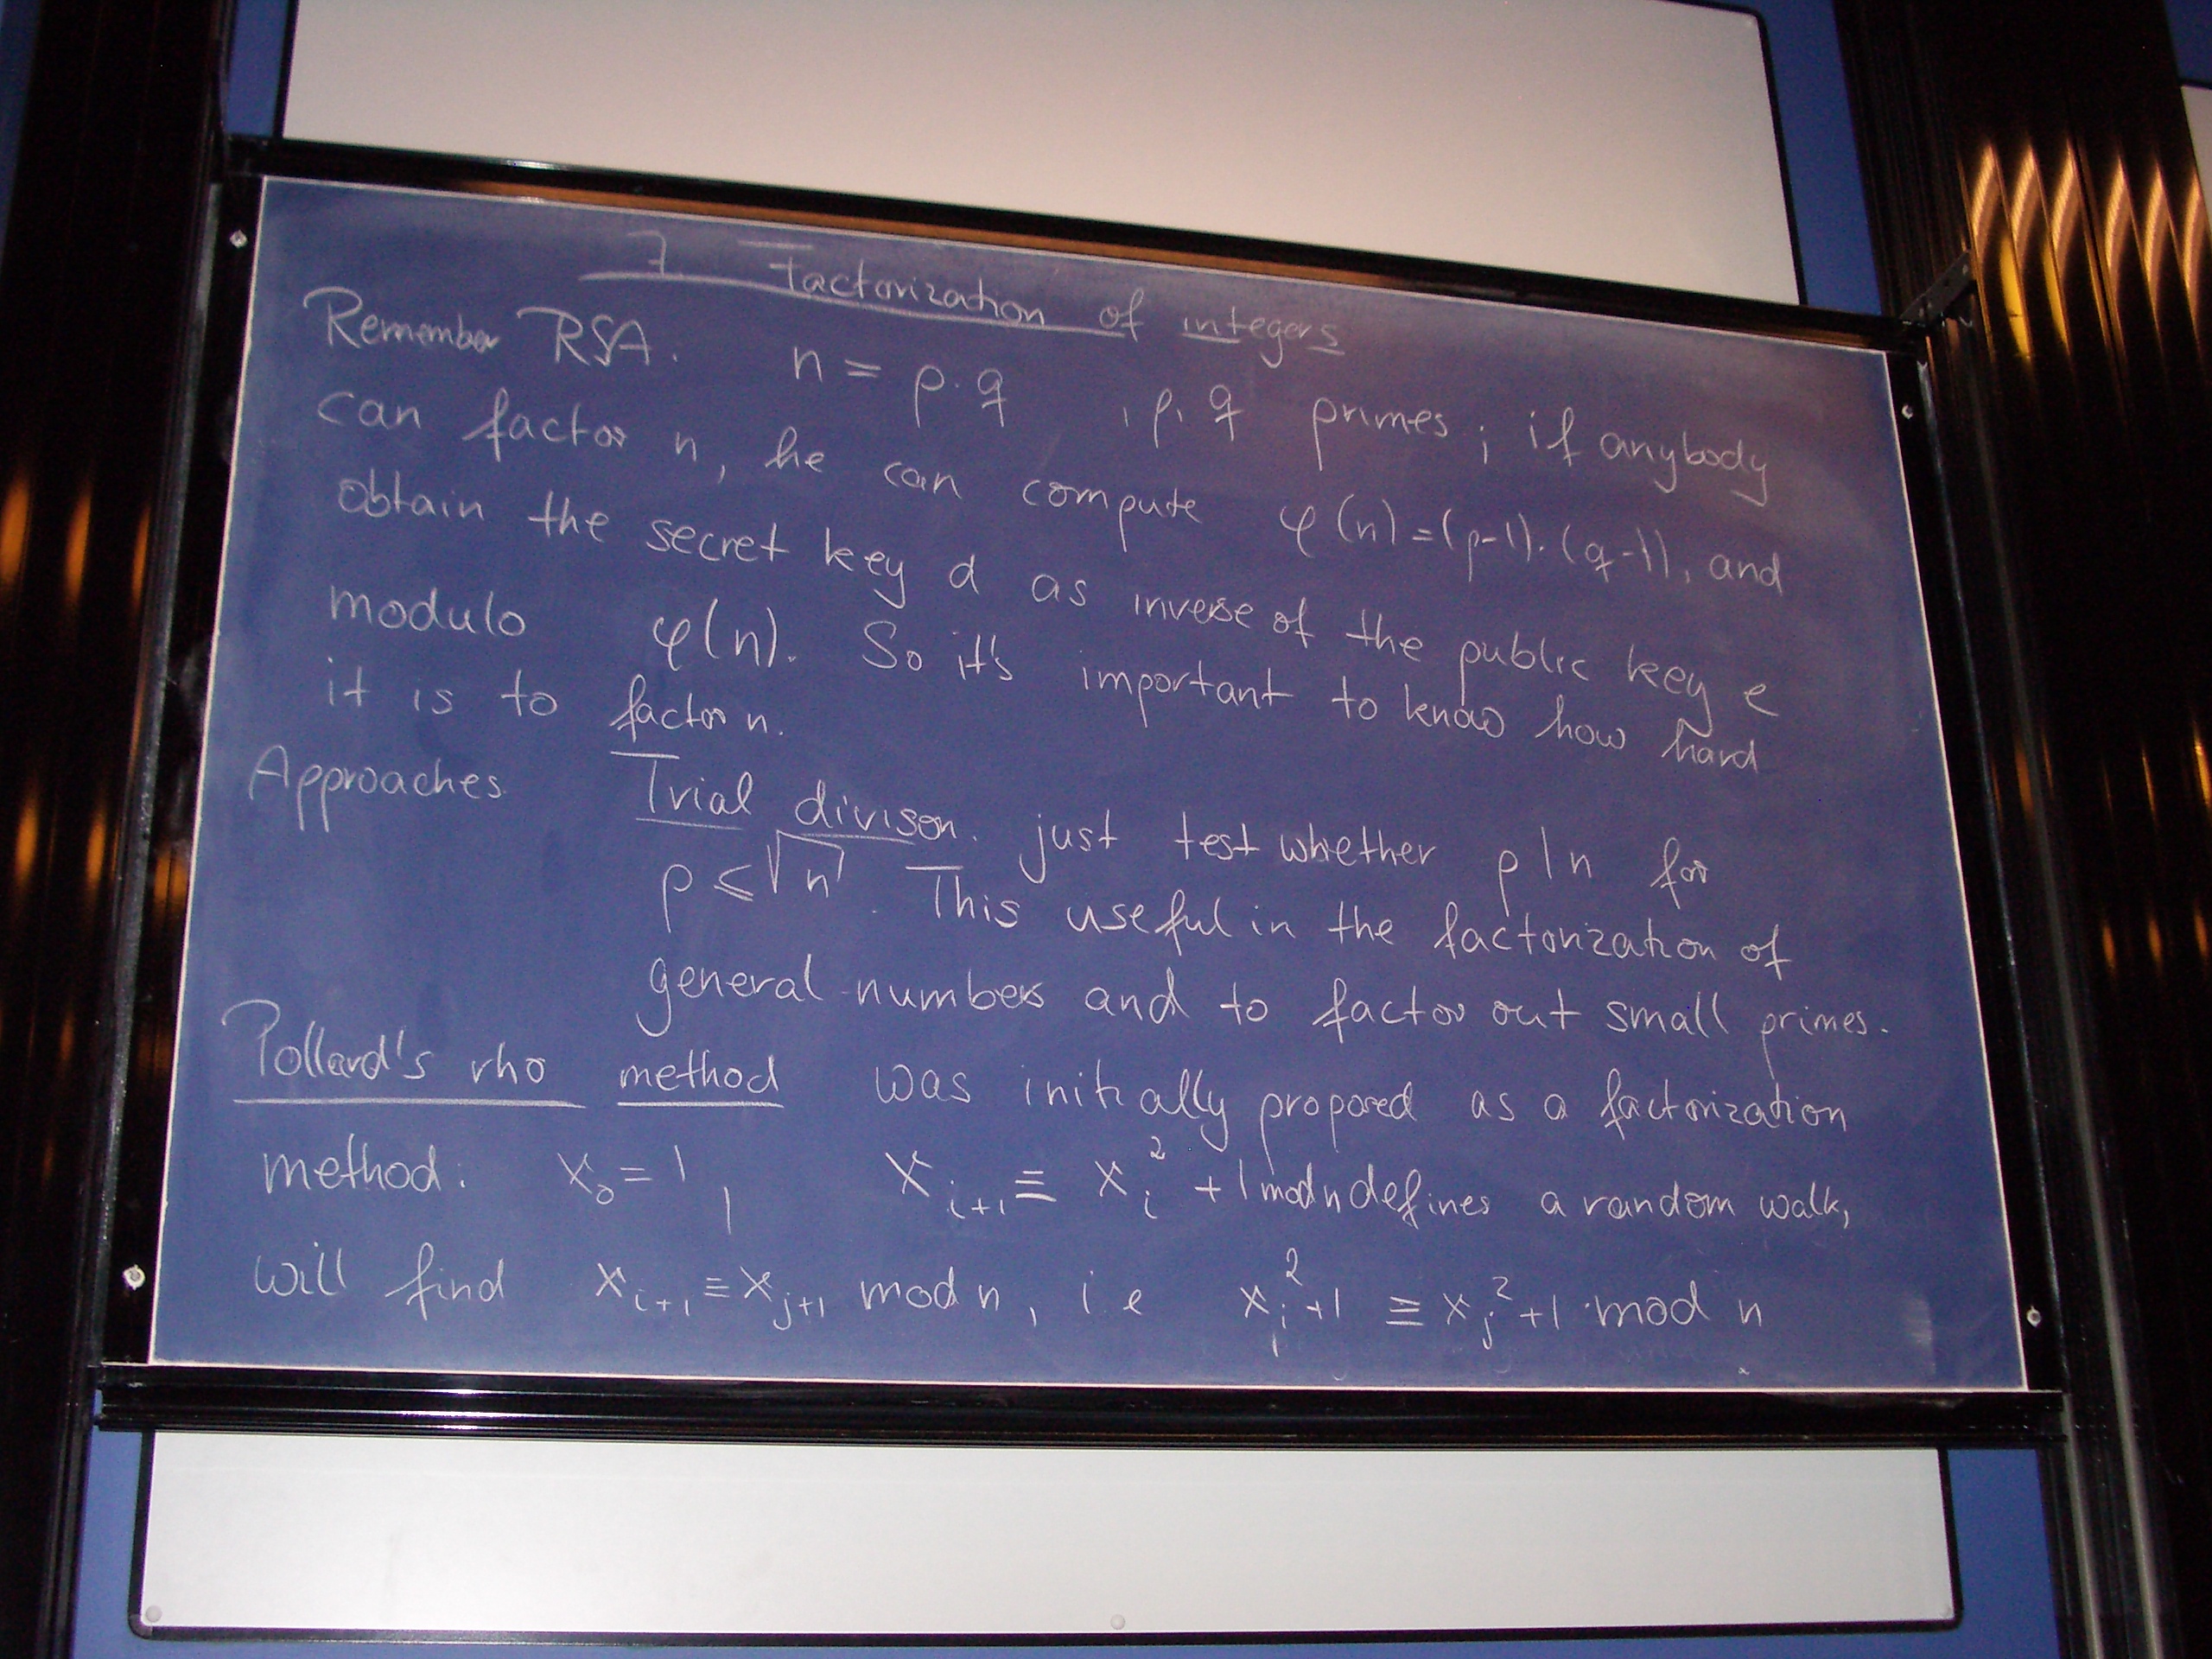 7. Factorization of integers
Remember RSA. n = p·q , p, q primes; if anybody
can factor n, he can compute φ(n)=(p-1)·(q-1), and
obtain the secret key d as inverse of the public key e
modulo φ(n). So it's important to know how hard
it is to factor n.
Approaches Trial divison. just test whether p|n for
p ≤ √n. This useful in the factorization of
general numbers and to factor out small primes.
Pollard's rho method was initially proposed as a factorization
method: x₀ = 1, xᵢ₊₁ ≡ xᵢ² + 1 mod n defines a random walk,
will find xᵢ₊₁ ≡ xⱼ₊₁ mod n, i.e xᵢ²+1 ≡ xⱼ²+1 mod n